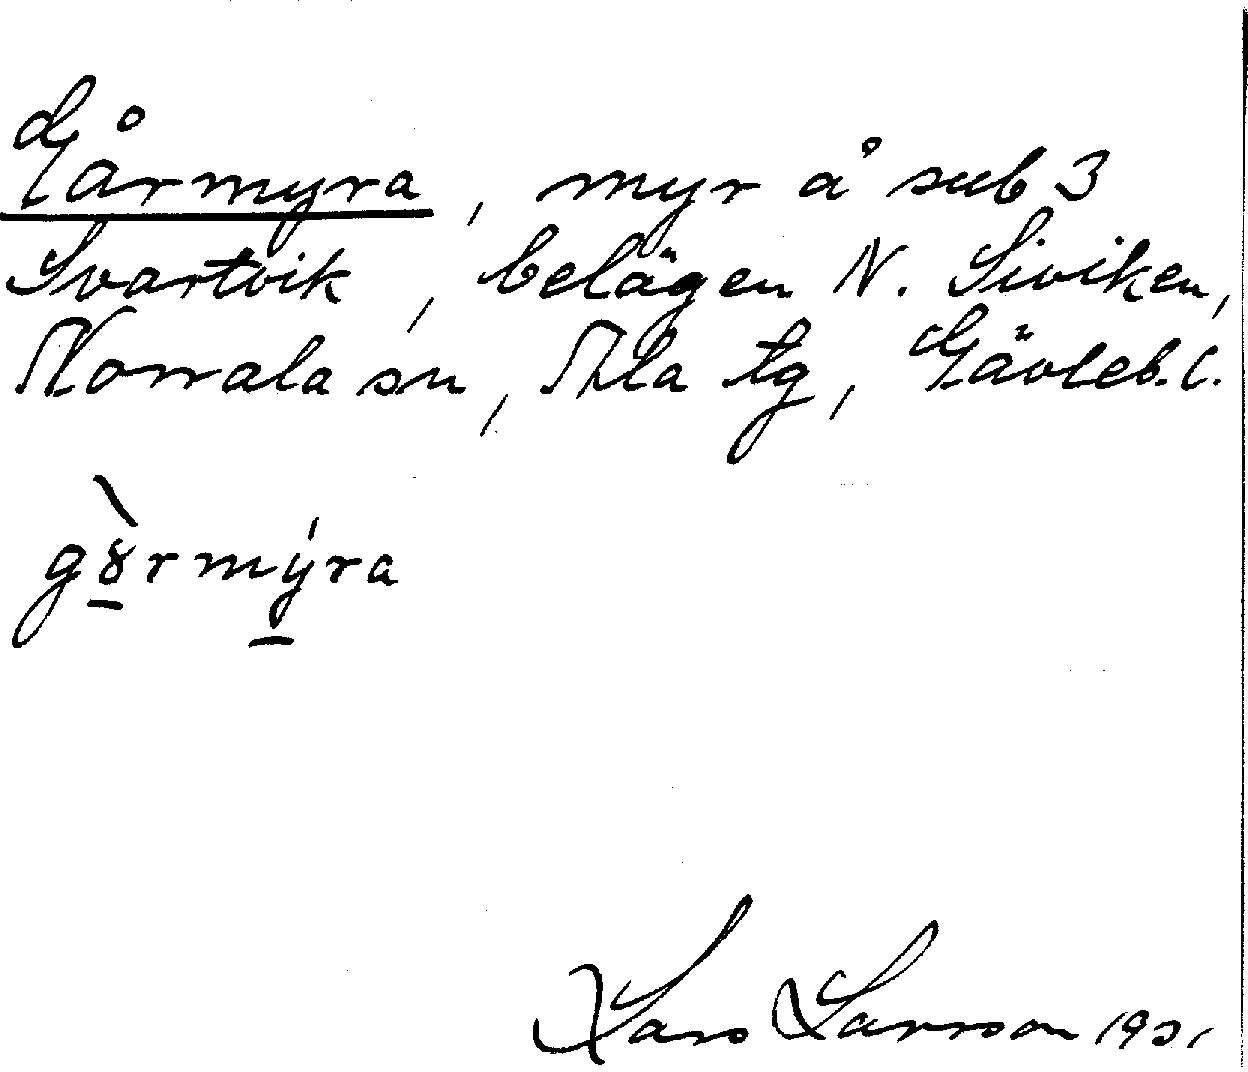 Gårmyra, myr å sub 3
Svartvik, belägen N. Siviken,
Norrala sn, Ala tg, Gävleb. l.
gȣ̀rmýra
Lars Larsson